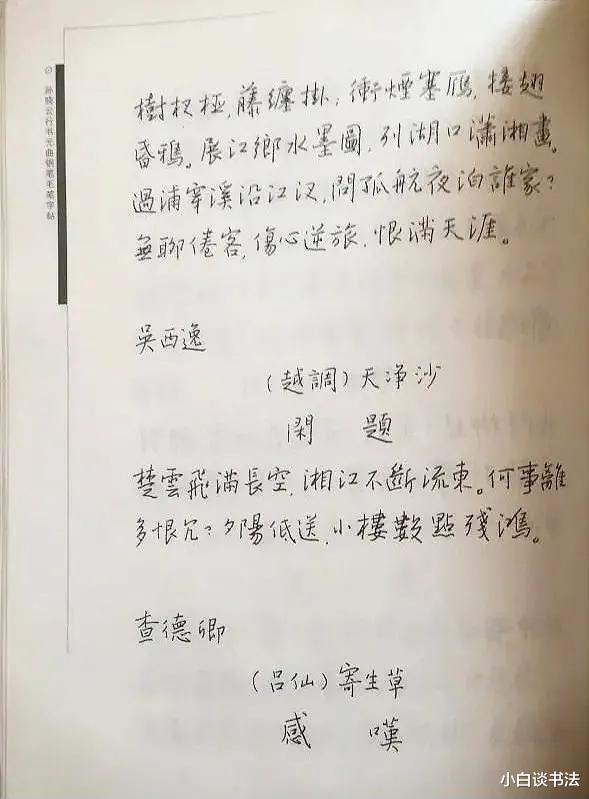 孙晓云行书元曲钢笔毛笔字帖
樹杈椏,藤纏掛;衝煙塞雁,接翅
昏鴉。展江鄉水墨圖,列湖口瀟湘畫。
過浦穿溪沿江汊,問孤航夜泊誰家?
無聊倦客,傷心逆旅,恨滿天涯。
吳西逸
(越調)天净沙
閑 題
楚雲飛滿長空,湘江不斷流東。何事離
多恨冗?夕陽低送,小樓數點殘鴻。
查德卿
(吕仙)寄生草
感 嘆
小白谈书法